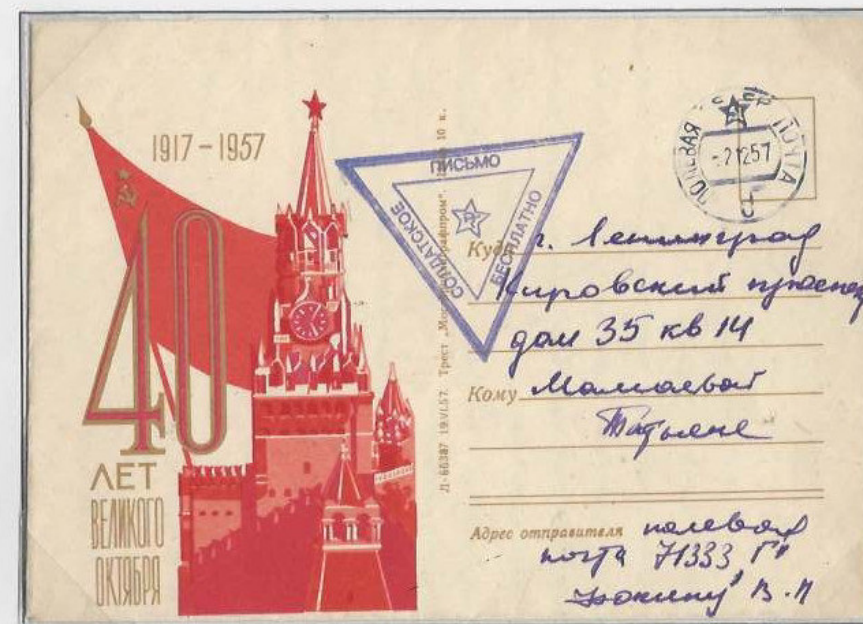 1917 – 1957
40
ЛЕТ
ВЕЛИКОГО
ОКТЯБРЯ
Л-66387 19.VI.57. Трест „Мос
10 к.
СОЛДАТСКОЕ
ПИСЬМО
БЕСПЛАТНО
ПОЛЕВАЯ ПОЧТА
СССР
-21257
Куда г. Ленинград
Кировский проспек
дом 35 кв 14
Кому Мамаевой
Татьяне
Адрес отправителя полевая
почта 71333 „Г“
В.П